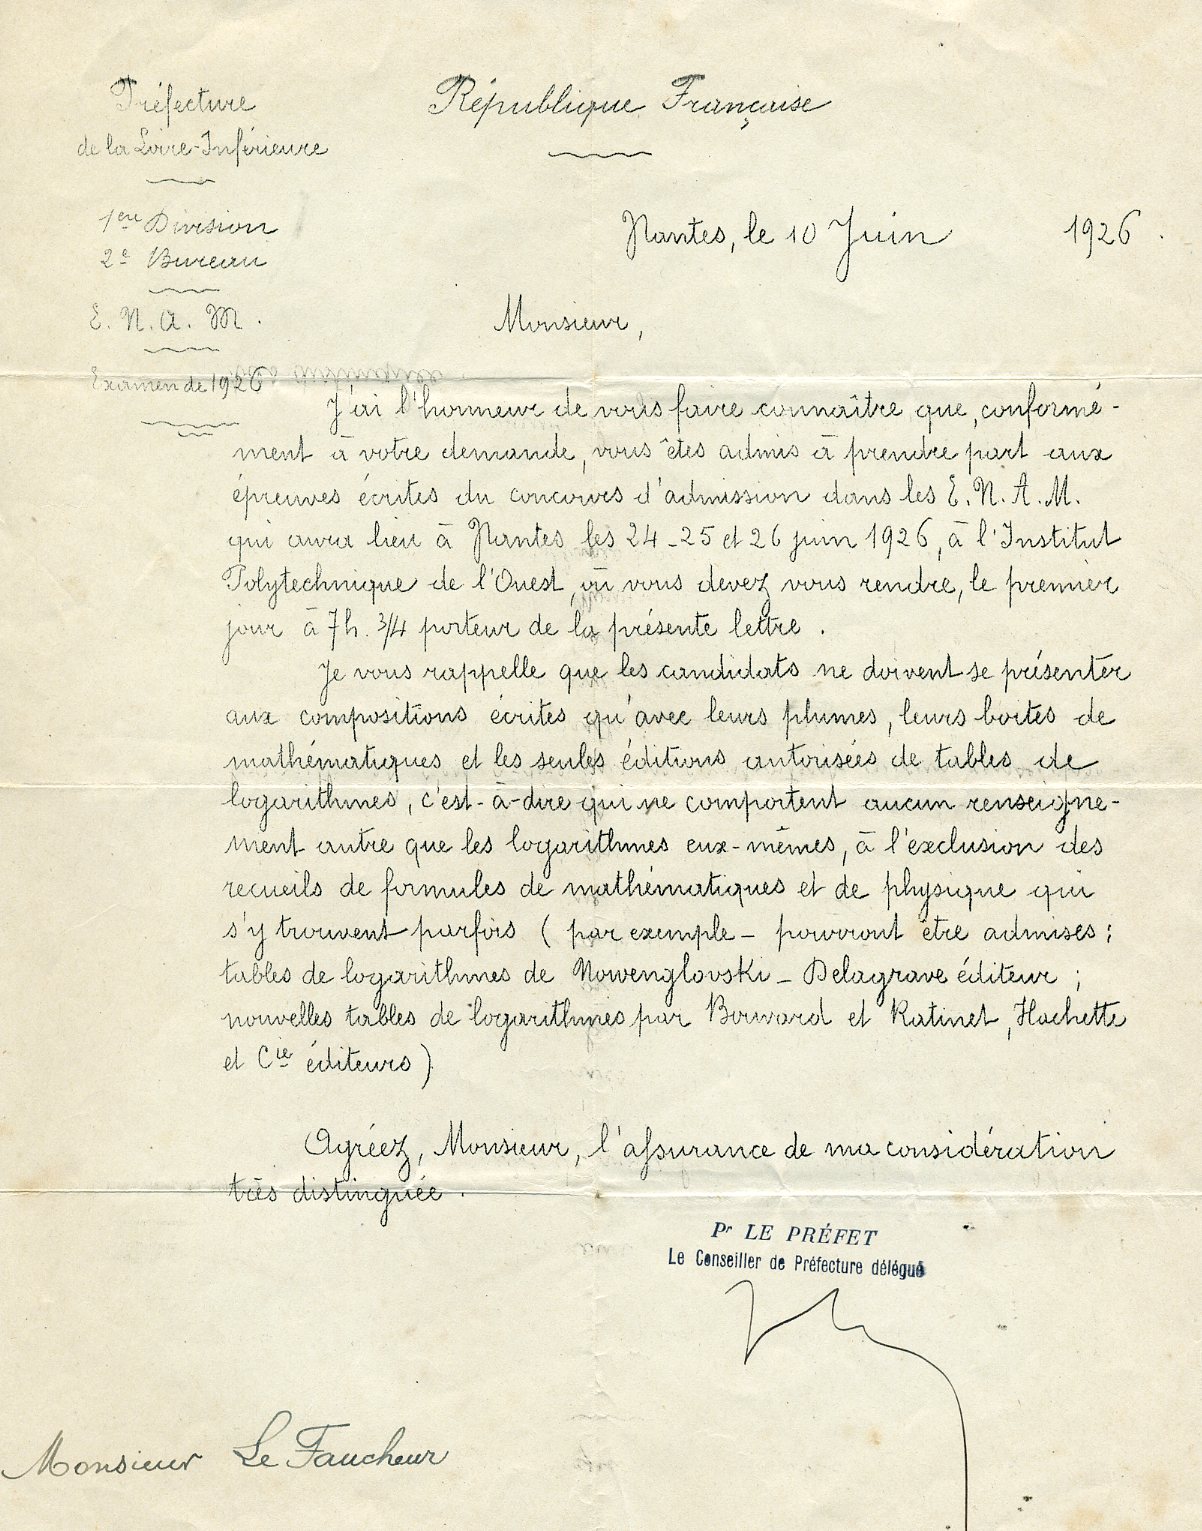 Préfecture
de la Loire-Inférieure
République Française
1ère Division
2e Bureau
E. N. A. M.
Examen de 1926
Nantes, le 10 Juin 1926.
Monsieur,
J'ai l'honneur de vous faire connaître que, conformé-
ment à votre demande, vous êtes admis à prendre part aux
épreuves écrites du concours d'admission dans les E. N. A. M.
qui aura lieu à Nantes les 24-25 et 26 juin 1926, à l'Institut
Polytechnique de l'Ouest, où vous devez vous rendre, le premier
jour à 7h. 3/4 porteur de la présente lettre.
Je vous rappelle que les candidats ne doivent se présenter
aux compositions écrites qu'avec leurs plumes, leurs boites de
mathématiques et les seules éditions autorisées de tables de
logarithmes, c'est-à-dire qui ne comportent aucun renseigne-
ment autre que les logarithmes eux-mêmes, à l'exclusion des
recueils de formules de mathématiques et de physique qui
s'y trouvent parfois (par exemple - pourront être admises:
tables de logarithmes de Nowenglovski - Delagrave éditeur;
nouvelles tables de logarithmes par Bouvard et Ratinet, Hachette
et Cie éditeurs)
Agréez, Monsieur, l'assurance de ma considération
très distinguée.
Pr LE PRÉFET
Le Conseiller de Préfecture délégué
Monsieur Le Faucheur